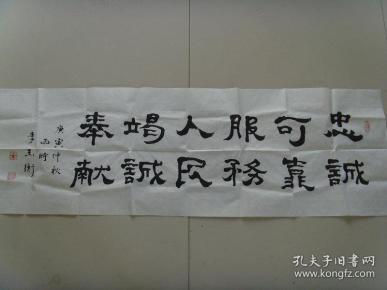 忠誠
可靠
服務
人民
竭誠
奉献
庚寅仲秋
孔夫子旧书网
www.kongfz.com